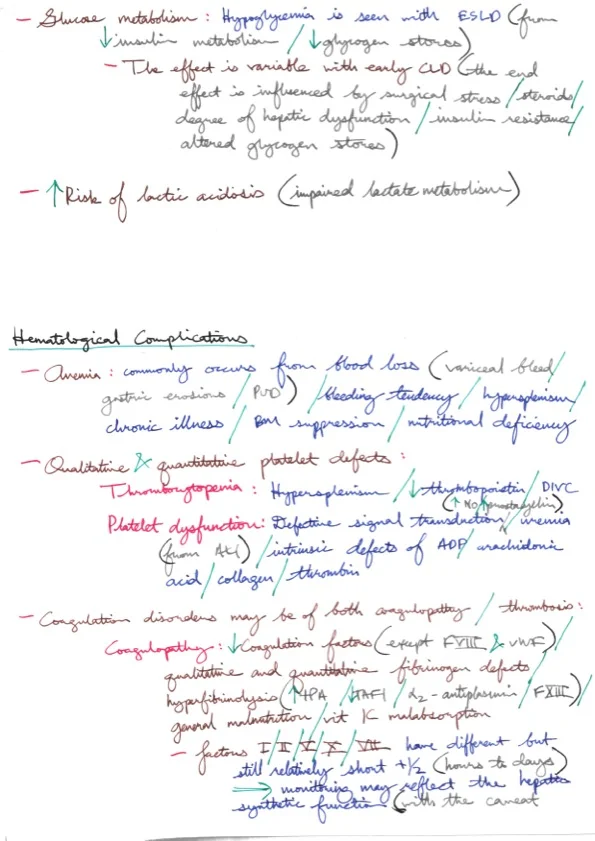 - Glucose metabolism : Hypoglycemia is seen with ESLD (from
↓ insulin metabolism / ↓ glycogen stores)
- The effect is variable with early CLD (the end
effect is influenced by surgical stress / steroids/
degree of hepatic dysfunction / insulin resistance/
altered glycogen stores)
- ↑ Risk of lactic acidosis (impaired lactate metabolism)
Hematological Complications
- Anemia : commonly occurs from blood loss (variceal bleed/
gastric erosions / PUD) / bleeding tendency / hypersplenism/
chronic illness / BM suppression / nutritional deficiency
- Qualitative & quantitative platelet defects :
Thrombocytopenia : Hypersplenism / ↓ thrombopoietin / DIVC
(↑ NO / prostacyclin)
Platelet dysfunction: Defective signal transduction / uremia
(from AKI) / intrinsic defects of ADP / arachidonic
acid / collagen / thrombin
- Coagulation disorders may be of both coagulopathy / thrombosis :
Coagulopathy : ↓ Coagulation factors (except FVIII & vWF) /
qualitative and quantitative fibrinogen defects /
hyperfibrinolysis (↑ tPA / ↓ TAFI / α2-antiplasmin / FXIII) /
general malnutrition / vit K malabsorption
- factors I / II / V / X / VII have different but
still relatively short t1/2 (hours to days)
⇒ monitoring may reflect the hepatic
synthetic function (with the caveat